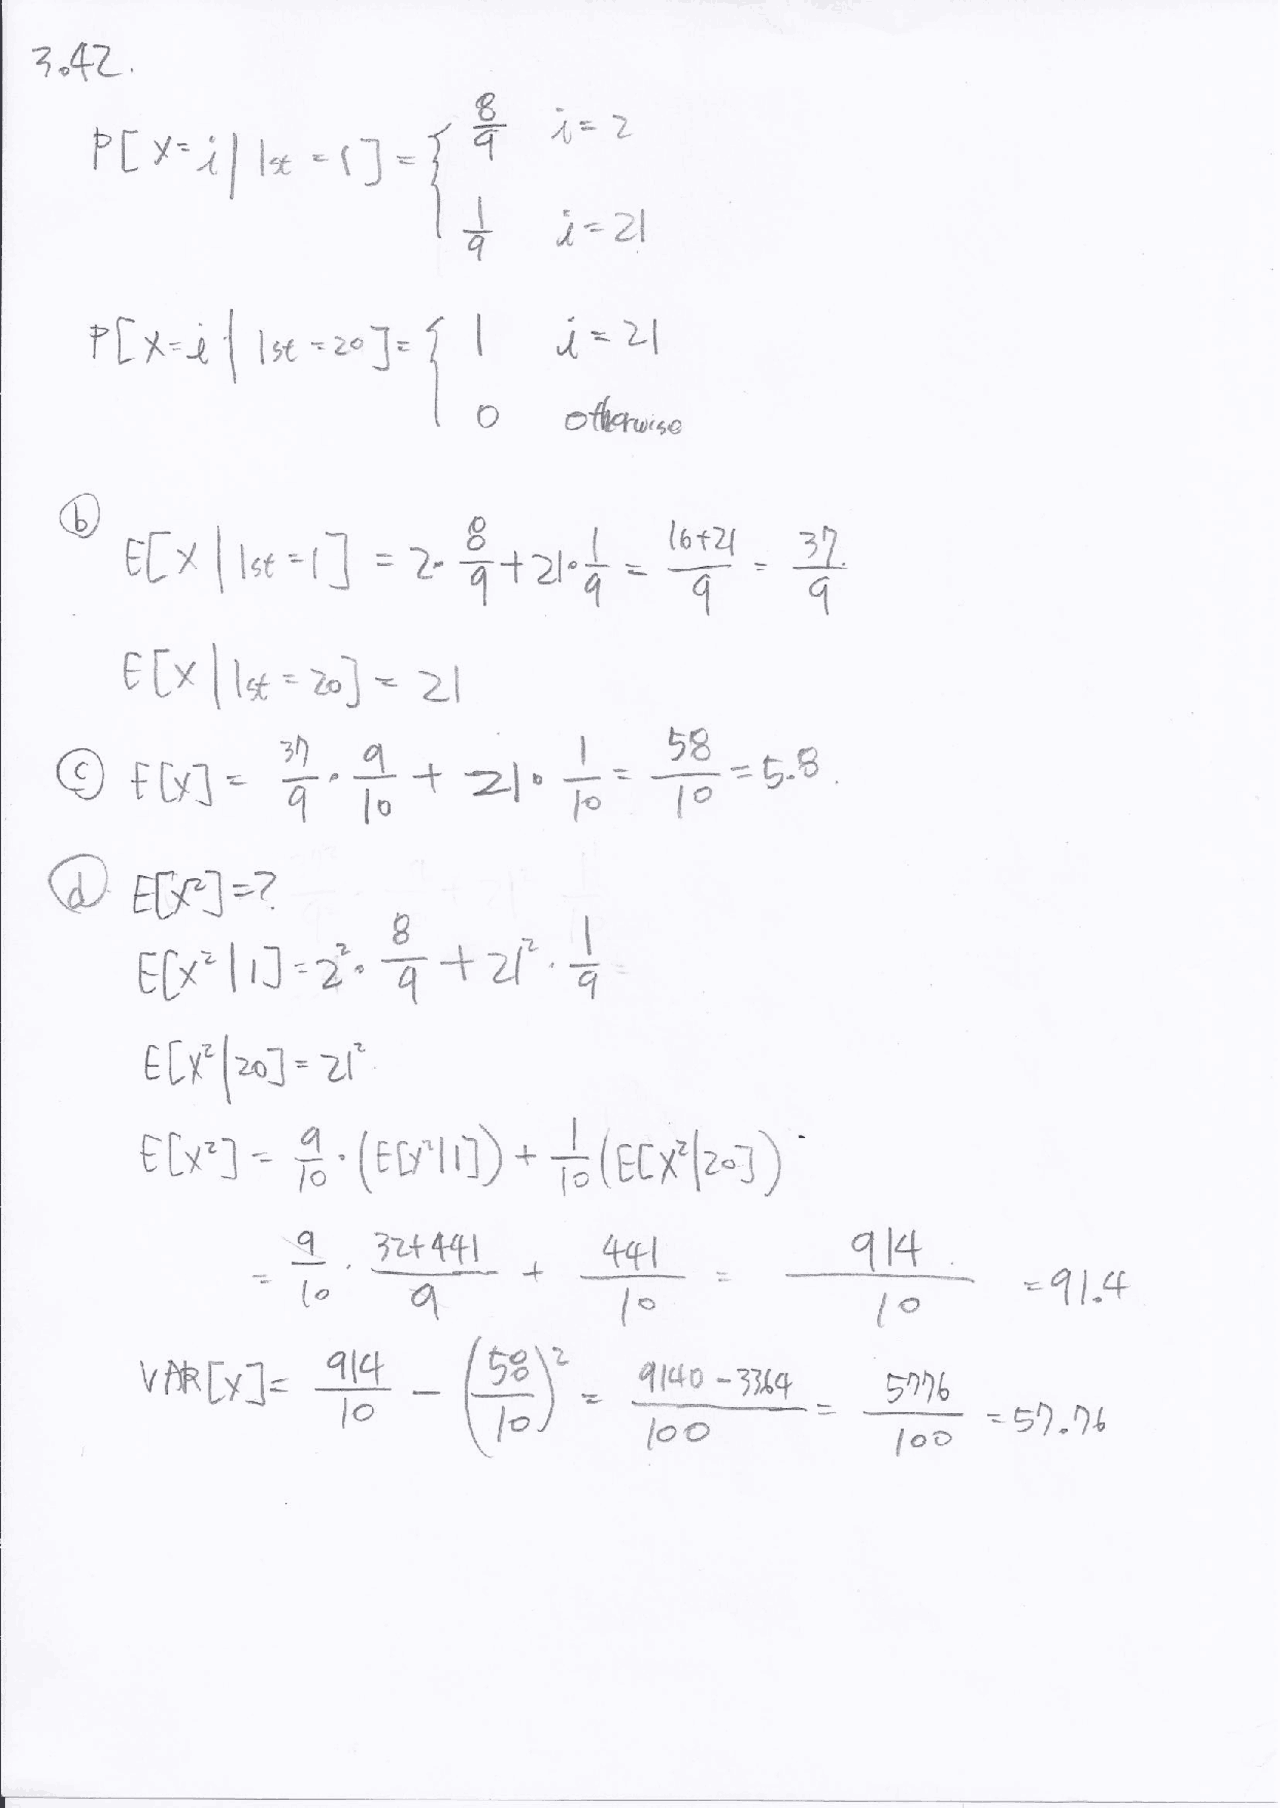 3.42.
P[X=i | 1st=1] = { 8/9 i=2
1/9 i=21
P[X=i | 1st=20] = { 1 i=21
0 otherwise
ⓑ
E[X | 1st=1] = 2·8/9+21·1/9 = (16+21)/9 = 37/9
E[X | 1st=20] = 21
ⓒ E[X] = 37/9·9/10 + 21·1/10 = 58/10 = 5.8.
ⓓ E[X²]=?
E[X²|1] = 2²·8/9 + 21²·1/9
E[X²|20] = 21²
E[X²] = 9/10·(E[X²|1]) + 1/10(E[X²|20])
= 9/10·(32+441)/9 + 441/10 = 914/10 = 91.4
VAR[X] = 914/10 − (58/10)² = (9140−3364)/100 = 5776/100 = 57.76